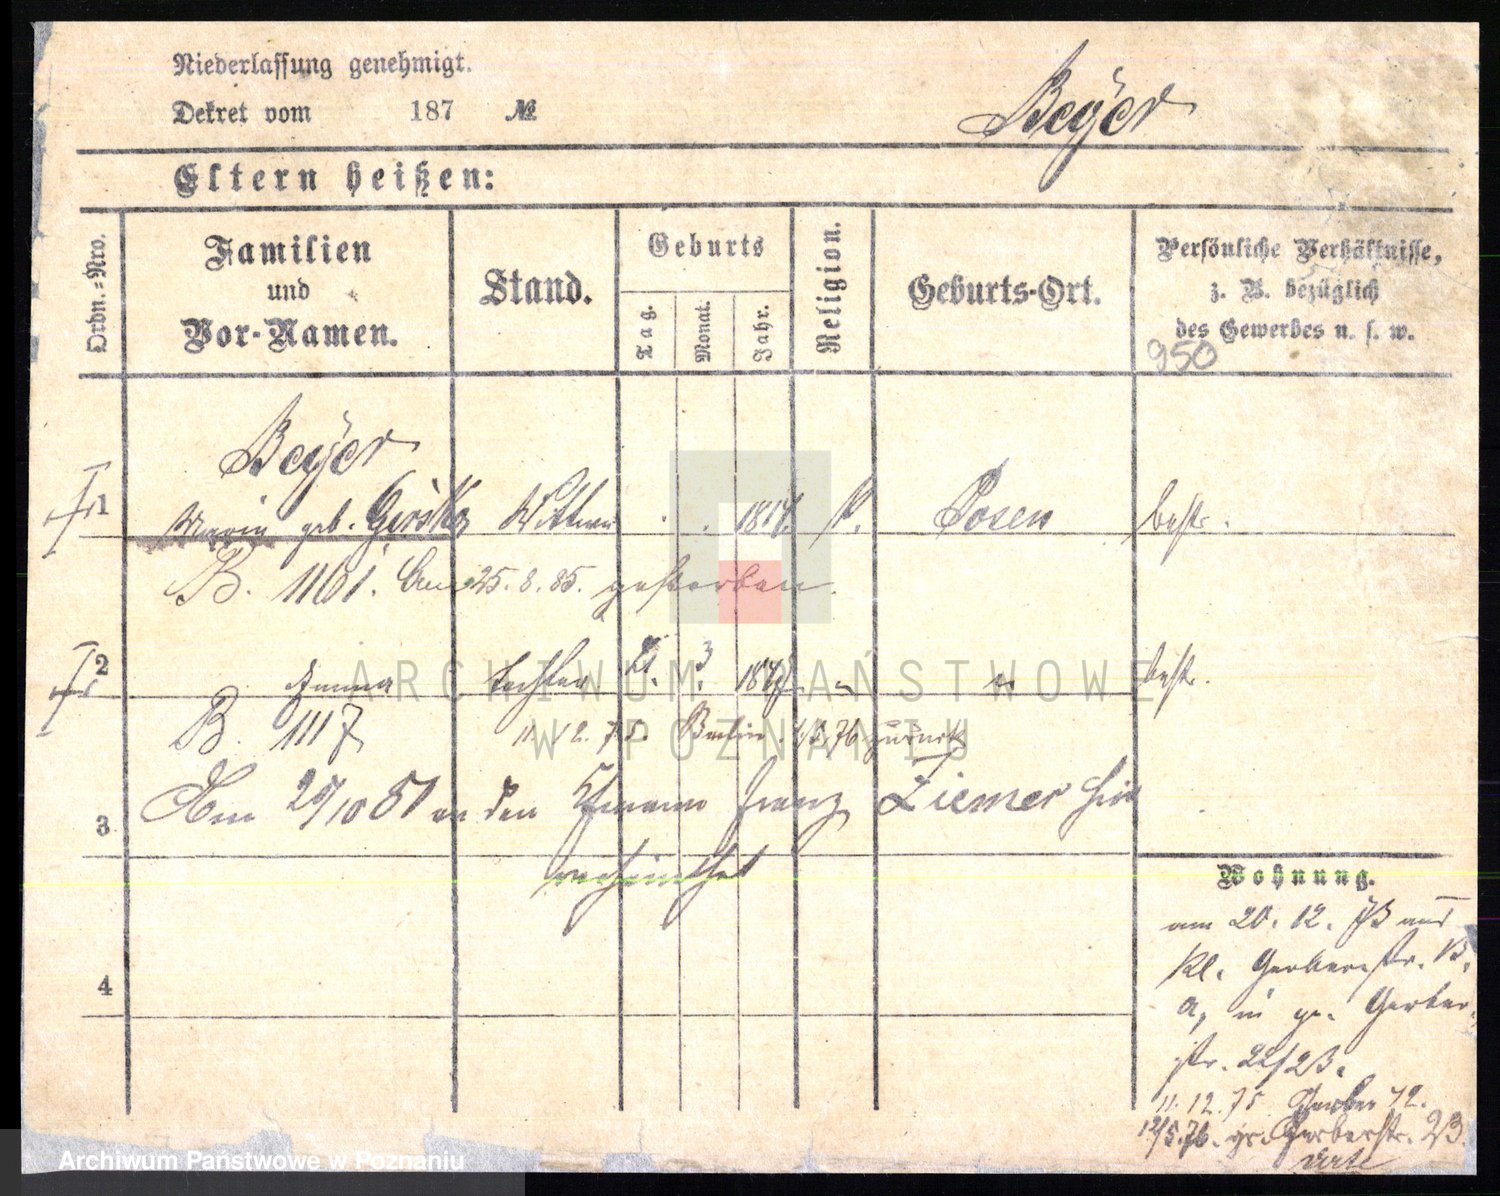 Niederlassung genehmigt.
Dekret vom 187 №
Beÿer
Eltern heißen:
Ordn.=Nro.
Familien
und
Vor-Namen.
Stand.
Geburts
Tag.
Monat.
Jahr.
Religion.
Geburts-Ort.
Persönliche Verhältnisse,
z. B. bezüglich
des Gewerbes u. s. w.
950
Beÿer
1 Maria geb. Wittwe 1817. Posen bestr.
B. 1161. Am 25. 8. 85. gestorben.
2 Emma Tochter 3. bestr.
B. 1117 11. 12. 75. Berlin 76 zurück
3 Am 10 81 an den Franz Ziemer hier
verheirathet
4
Wohnung.
am 20. 12. 73 aus
Kl. Gerberstr. 13.
a, in gr. Gerber-
str. 22/23.
11. 12. 75 Gerber 42.
12/5.76. gr. Gerberstr. 23.
ARCHIWUM PAŃSTWOWE
W POZNANIU
Archiwum Państwowe w Poznaniu